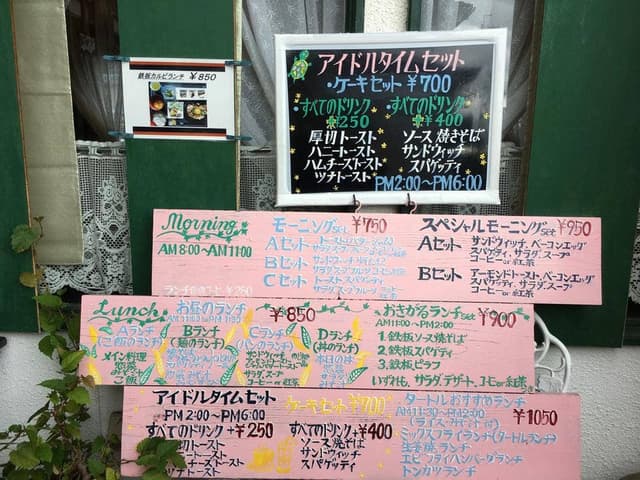 鉄板カルビランチ ¥850
アイドルタイムセット
・ケーキセット ¥700
・すべてのドリンク
+¥250
厚切トースト
ハニートースト
ハムチーズトースト
ツナトースト
・すべてのドリンク
+¥400
ソース焼きそば
サンドウィッチ
スパゲッティ
PM2:00~PM6:00
Morning
AM8:00~AM11:00
モーニングset ¥750
Aセット
Bセット
Cセット トースト.スパサラ
スペシャルモーニングset ¥950
Aセット サンドウィッチ、ベーコンエッグ
スパゲティ、サラダ、スープ
コーヒー or 紅茶
Bセット アーモンドトースト、ベーコンエッグ
スパゲティ、サラダ、スープ
コーヒー or 紅茶
Lunch お昼のランチ ¥850
AM11:00~PM2:00
Aランチ
(ご飯のランチ)
メイン料理
惣菜
ご飯
Bランチ
(麺のランチ)
Cランチ
(パンのランチ)
サンドウィッチ
サラダ、スープ
コーヒー or 紅茶
Dランチ
(丼のランチ)
本日の丼
おきがるランチset ¥900
AM11:00~PM2:00
1.鉄板ソース焼そば
2.鉄板スパゲティ
3.鉄板ピラフ
いずれも、サラダ、デザート、コーヒor紅茶
アイドルタイムセット
PM2:00~PM6:00
ケーキセット ¥700
すべてのドリンク+¥250
トースト
ハニートースト
ハムチーズトースト
ツナトースト
すべてのドリンク+¥400
ソース焼そば
サンドウィッチ
スパゲッティ
タートルおすすめランチ
AM11:30~PM2:00 ¥1050
ミックスフライランチ(タートルランチ)
生姜焼ランチ
エビフライハンバーグランチ
トンカツランチ